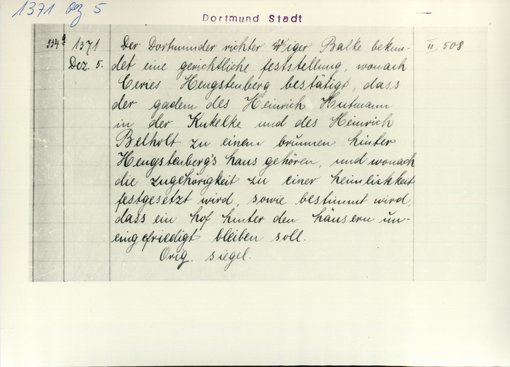 1371 Dez 5
Dortmund Stadt
334a 1371 Dez. 5.
Der Dortmunder richter Wiger Balke bekun-
det eine gerichtliche feststellung, wonach
Cernes Hengstenberg bestätigt, dass
der gadem des Heinrich Hutmann
in der Kukelke und des Heinrich
Belholt zu einem brunnen hinter
Hengstenberg's haus gehören, und wonach
die zugehörigkeit zu einer heimlichkeit
festgesetzt wird, sowie bestimmt wird,
dass ein hof hinter den häusern un-
eingefriedigt bleiben soll.
Orig. siegel.
II 508